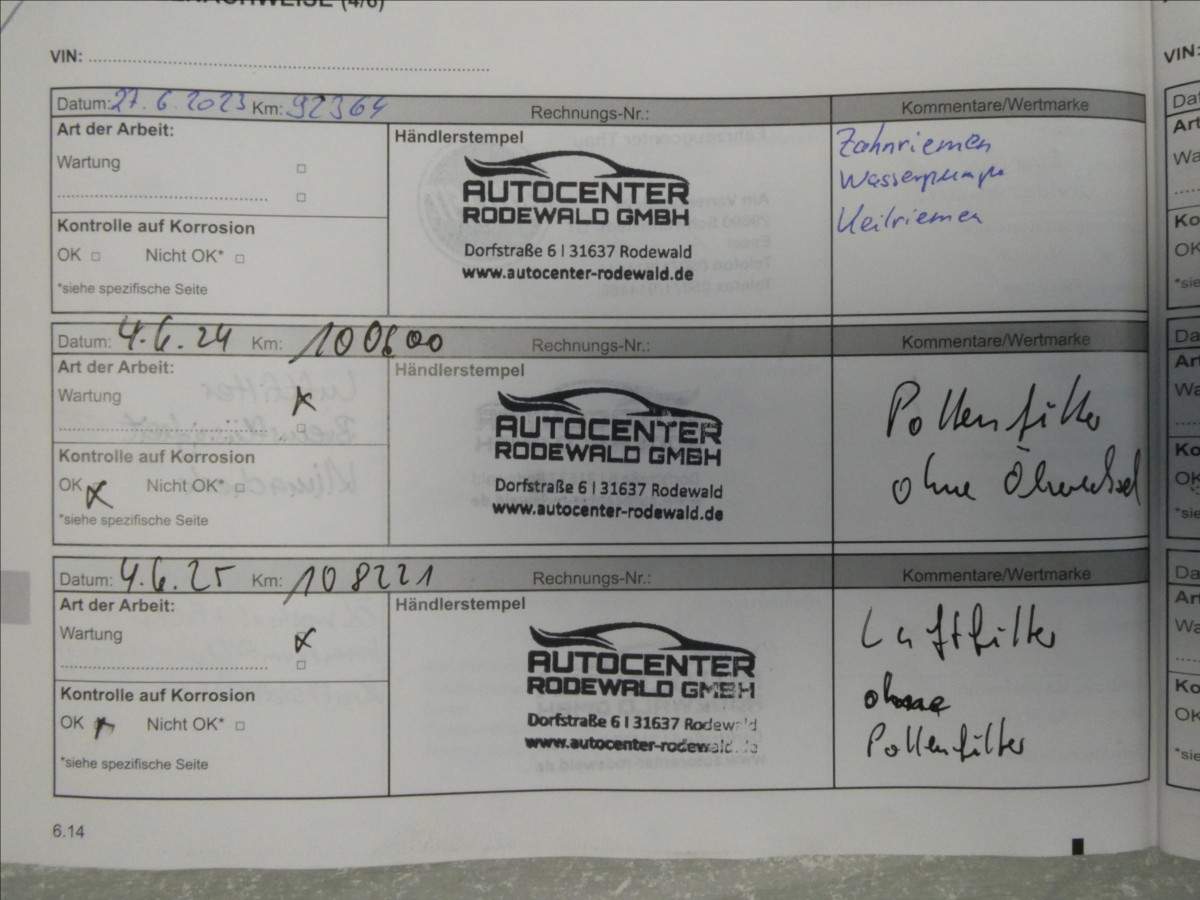 (4/6)
VIN:
Datum: 27.6.2023 Km: 92364 Rechnungs-Nr.: Kommentare/Wertmarke
Art der Arbeit:
Wartung
Kontrolle auf Korrosion
OK Nicht OK*
*siehe spezifische Seite
Händlerstempel
AUTOCENTER
RODEWALD GMBH
Dorfstraße 6 | 31637 Rodewald
www.autocenter-rodewald.de
Zahnriemen
Wasserpumpe
Keilriemen
Datum: 4.6.24 Km: 100600 Rechnungs-Nr.: Kommentare/Wertmarke
Art der Arbeit:
Wartung
Kontrolle auf Korrosion
OK Nicht OK*
*siehe spezifische Seite
Händlerstempel
AUTOCENTER
RODEWALD GMBH
Dorfstraße 6 | 31637 Rodewald
www.autocenter-rodewald.de
Pollenfilter
ohne Ölwechsel
Datum: 4.6.25 Km: 108221 Rechnungs-Nr.: Kommentare/Wertmarke
Art der Arbeit:
Wartung
Kontrolle auf Korrosion
OK Nicht OK*
*siehe spezifische Seite
Händlerstempel
AUTOCENTER
RODEWALD GMBH
Dorfstraße 6 | 31637 Rodewald
www.autocenter-rodewald.de
Luftfilter
ohne
Pollenfilter
6.14
VIN: